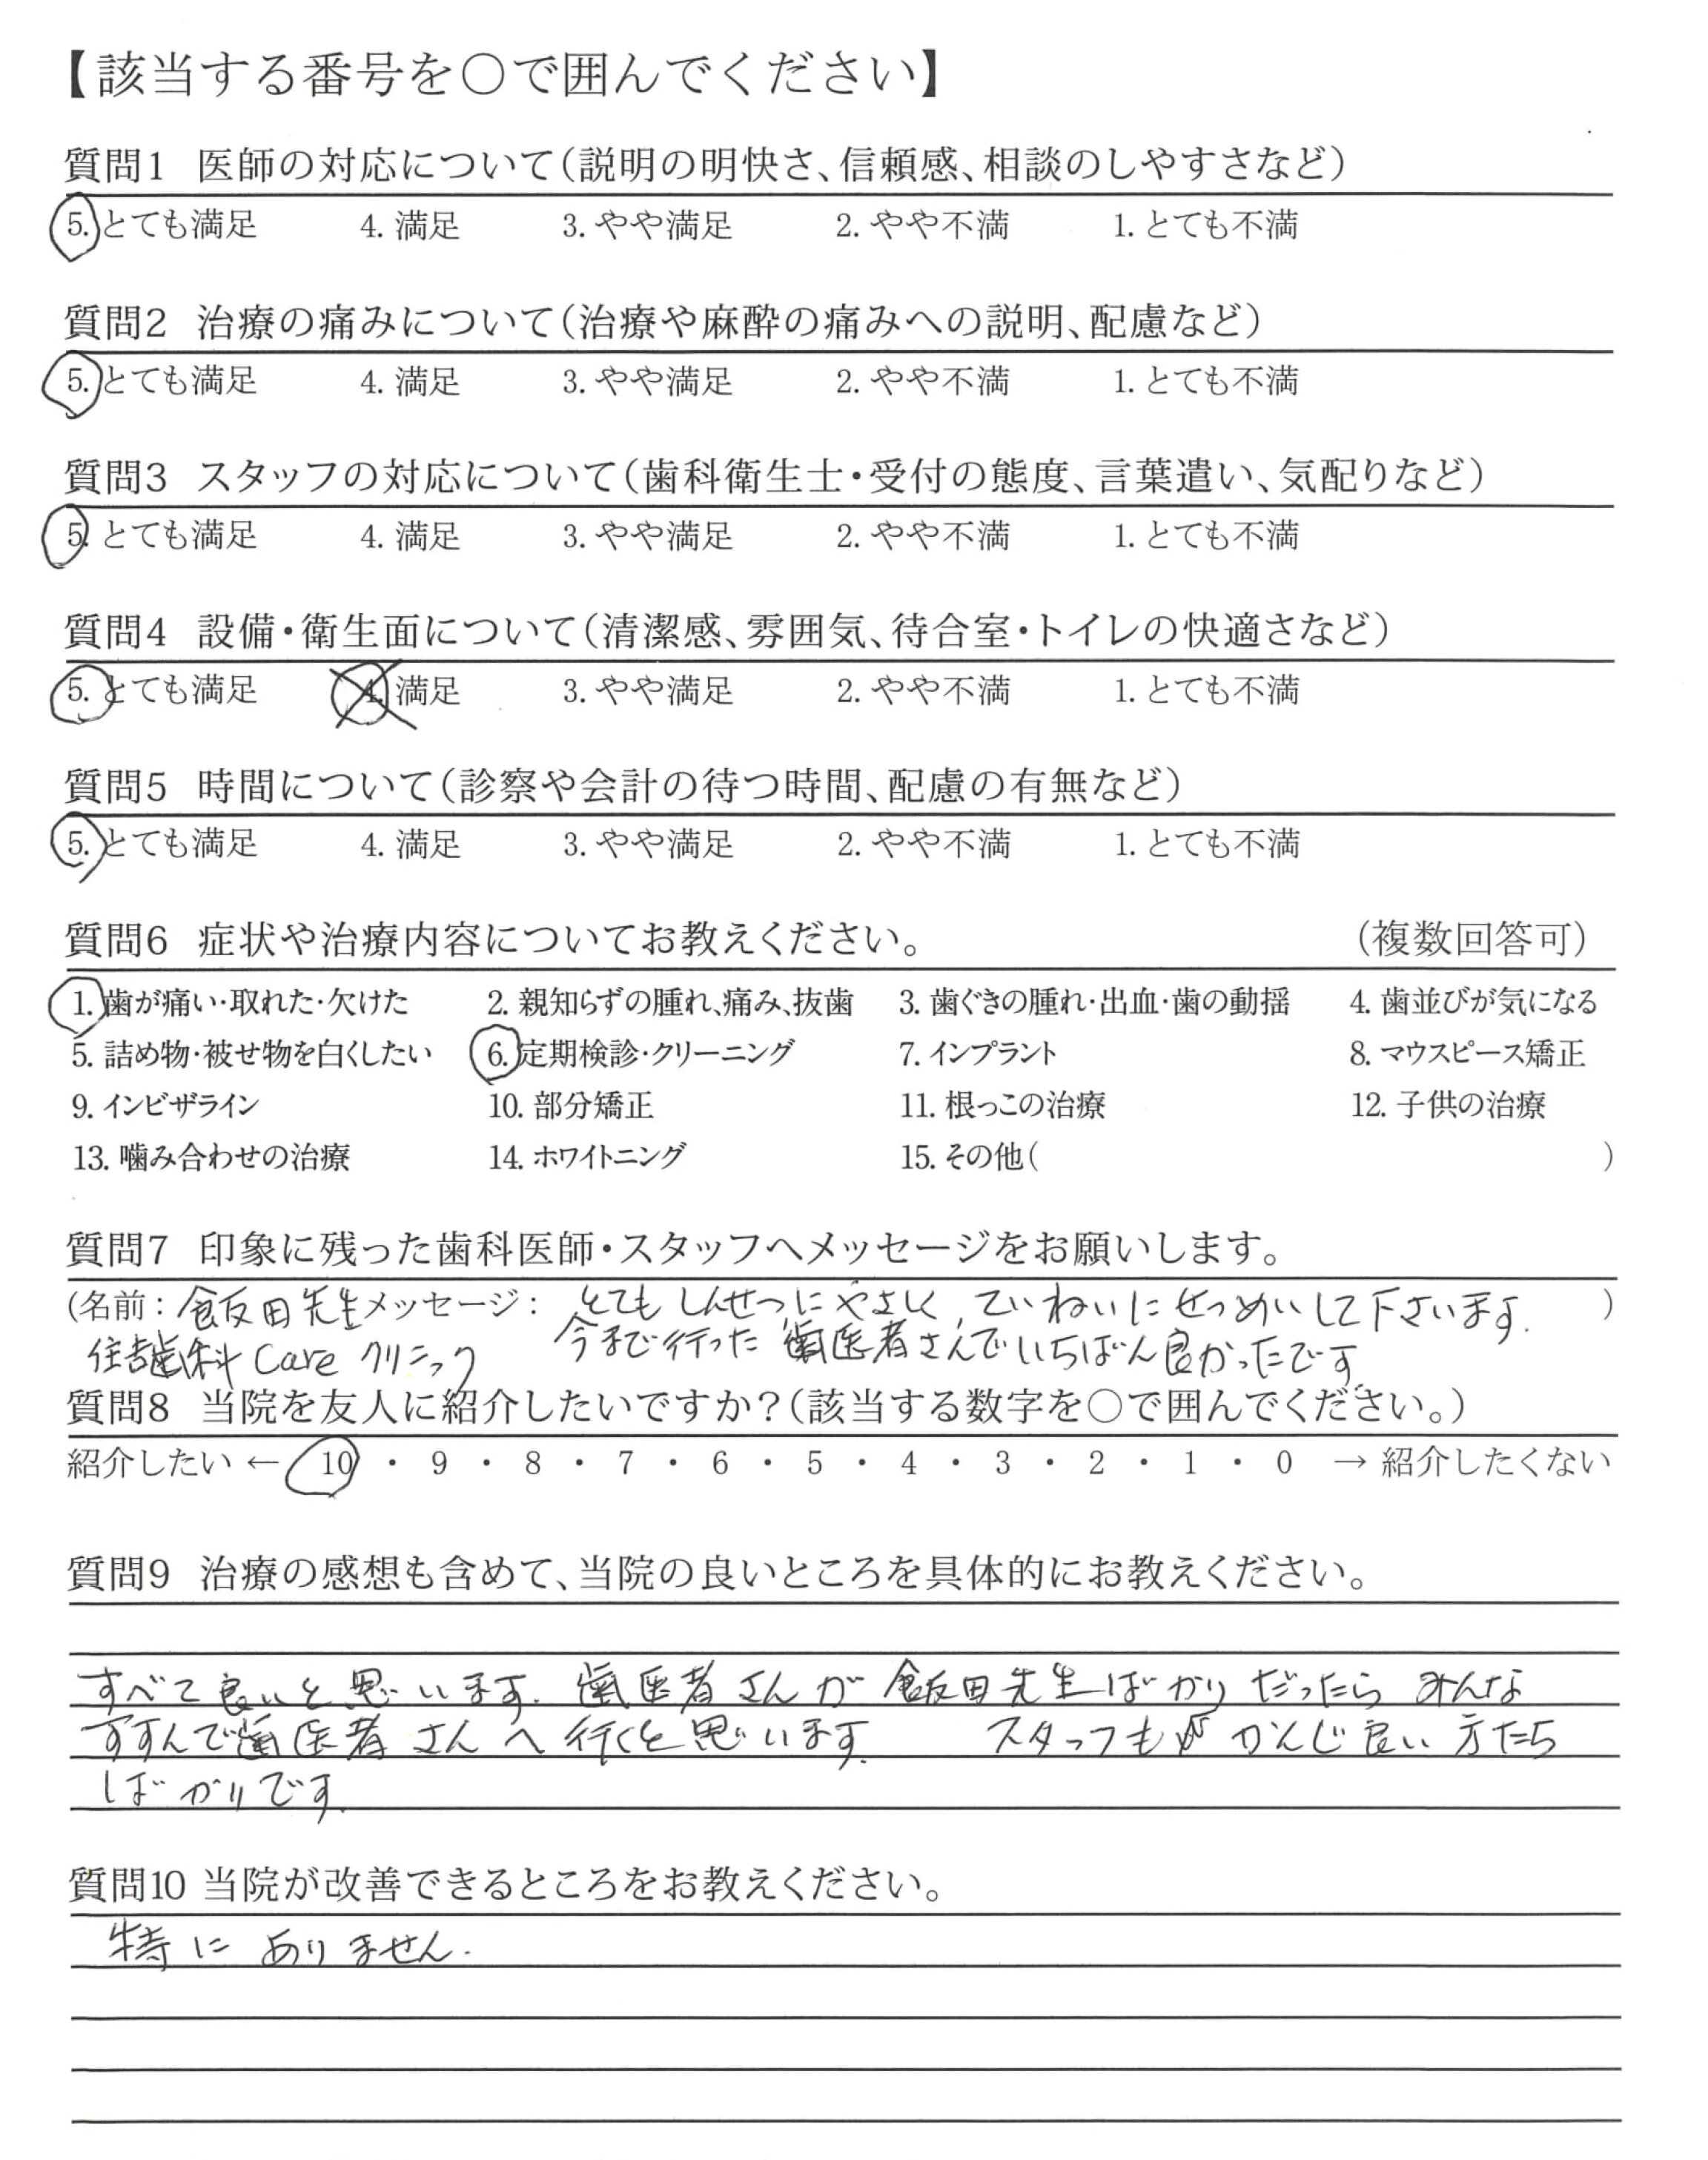 【該当する番号を○で囲んでください】
質問1 医師の対応について(説明の明快さ、信頼感、相談のしやすさなど)
5. とても満足 4. 満足 3. やや満足 2. やや不満 1. とても不満
質問2 治療の痛みについて(治療や麻酔の痛みへの説明、配慮など)
5. とても満足 4. 満足 3. やや満足 2. やや不満 1. とても不満
質問3 スタッフの対応について(歯科衛生士・受付の態度、言葉遣い、気配りなど)
5. とても満足 4. 満足 3. やや満足 2. やや不満 1. とても不満
質問4 設備・衛生面について(清潔感、雰囲気、待合室・トイレの快適さなど)
5. とても満足 4. 満足 3. やや満足 2. やや不満 1. とても不満
質問5 時間について(診察や会計の待つ時間、配慮の有無など)
5. とても満足 4. 満足 3. やや満足 2. やや不満 1. とても不満
質問6 症状や治療内容についてお教えください。 (複数回答可)
1. 歯が痛い・取れた・欠けた 2. 親知らずの腫れ、痛み、抜歯 3. 歯ぐきの腫れ・出血・歯の動揺 4. 歯並びが気になる
5. 詰め物・被せ物を白くしたい 6. 定期検診・クリーニング 7. インプラント 8. マウスピース矯正
9. インビザライン 10. 部分矯正 11. 根っこの治療 12. 子供の治療
13. 噛み合わせの治療 14. ホワイトニング 15. その他( )
質問7 印象に残った歯科医師・スタッフへメッセージをお願いします。
(名前: 飯田先生 メッセージ: とても しんせつに やさしく, ていねいに せつめいして下さいます. )
住吉歯科 Care クリニック 今まで行った 歯医者さんでいちばん良かったです.
質問8 当院を友人に紹介したいですか?(該当する数字を○で囲んでください。)
紹介したい ← 10 ・ 9 ・ 8 ・ 7 ・ 6 ・ 5 ・ 4 ・ 3 ・ 2 ・ 1 ・ 0 → 紹介したくない
質問9 治療の感想も含めて、当院の良いところを具体的にお教えください。
すべて良いと思います. 歯医者さんが 飯田先生ばかりだったら みんな
すすんで歯医者さんへ行くと思います. スタッフも かんじ良い方たち
ばかりです.
質問10 当院が改善できるところをお教えください。
特に ありません.